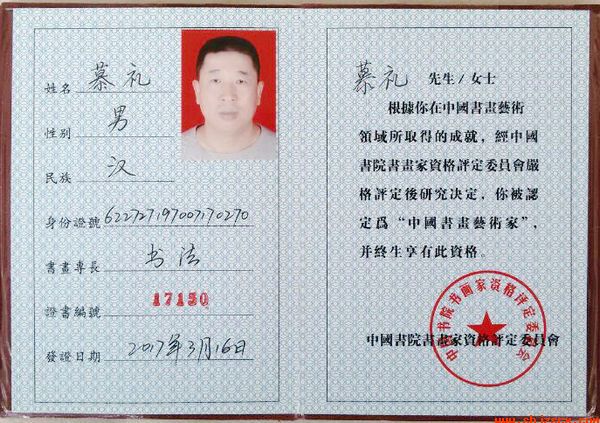 姓名 慕礼
性别 男
民族 汉
身份證號 622727197007170270
書畫專長 书法
證書編號 17150
發證日期 2017年3月16日
慕礼 先生/女士
根據你在中國書畫藝術
領域所取得的成就，經中國
書院書畫家資格評定委員會嚴
格評定後研究决定，你被認
定爲“中國書畫藝術家”，
并終生享有此資格。
中国书院书画家资格评定委员会
中國書院書畫家資格評定委員會